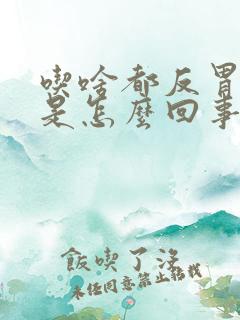 喫啥都反胃
是怎麼回事
飯喫了沒
未經同意禁止轉載